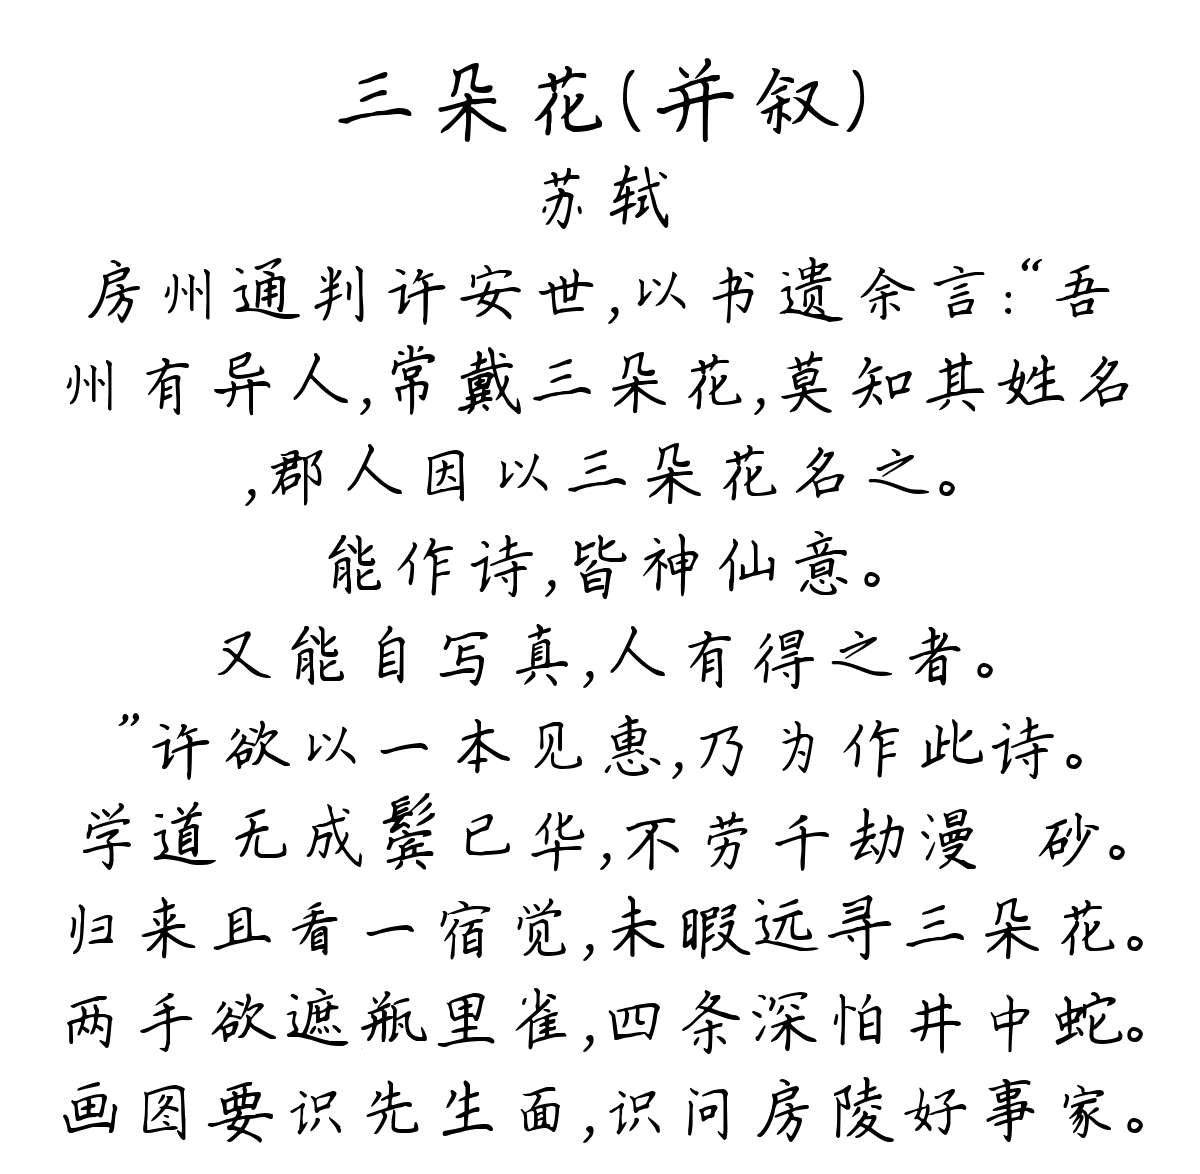 三朵花(并叙)
苏轼
房州通判许安世,以书遗余言:“吾
州有异人,常戴三朵花,莫知其姓名
,郡人因以三朵花名之。
能作诗,皆神仙意。
又能自写真,人有得之者。
”许欲以一本见惠,乃为作此诗。
学道无成鬓已华,不劳千劫漫 砂。
归来且看一宿觉,未暇远寻三朵花。
两手欲遮瓶里雀,四条深怕井中蛇。
画图要识先生面,识问房陵好事家。